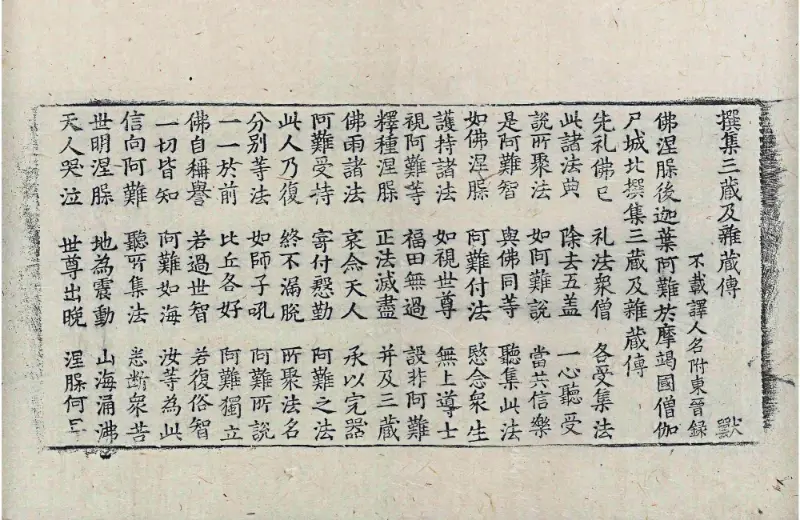 撰集三蔵及雜蔵傳 黙
不載譯人名附東晉録
佛涅槃後迦葉阿難於摩竭國僧伽
尸城北撰集三蔵及雜蔵傳
先礼佛已 礼法衆僧 各受集法
此諸法典 除去五盖 一心聽受
說所聚法 如阿難說 當共信樂
是阿難智 與佛同等 聽集此法
如佛涅槃 阿難付法 愍念衆生
護持諸法 如視世尊 無上導士
視阿難等 福田無過 設非阿難
釋種涅槃 正法滅盡 并及三蔵
佛雨諸法 哀念天人 承以完器
阿難受持 寄付慇勤 阿難之法
此人乃復 終不漏脫 所聚法名
分别等法 如師子吼 阿難所說
一一於前 比丘各好 阿難獨立
佛自稱譽 若過世智 若復俗智
一切皆知 阿難如海 汝等為此
信向阿難 聽所集法 悉斷衆苦
世明涅槃 地為震動 山海涌沸
天人哭泣 世尊出晚 涅槃何